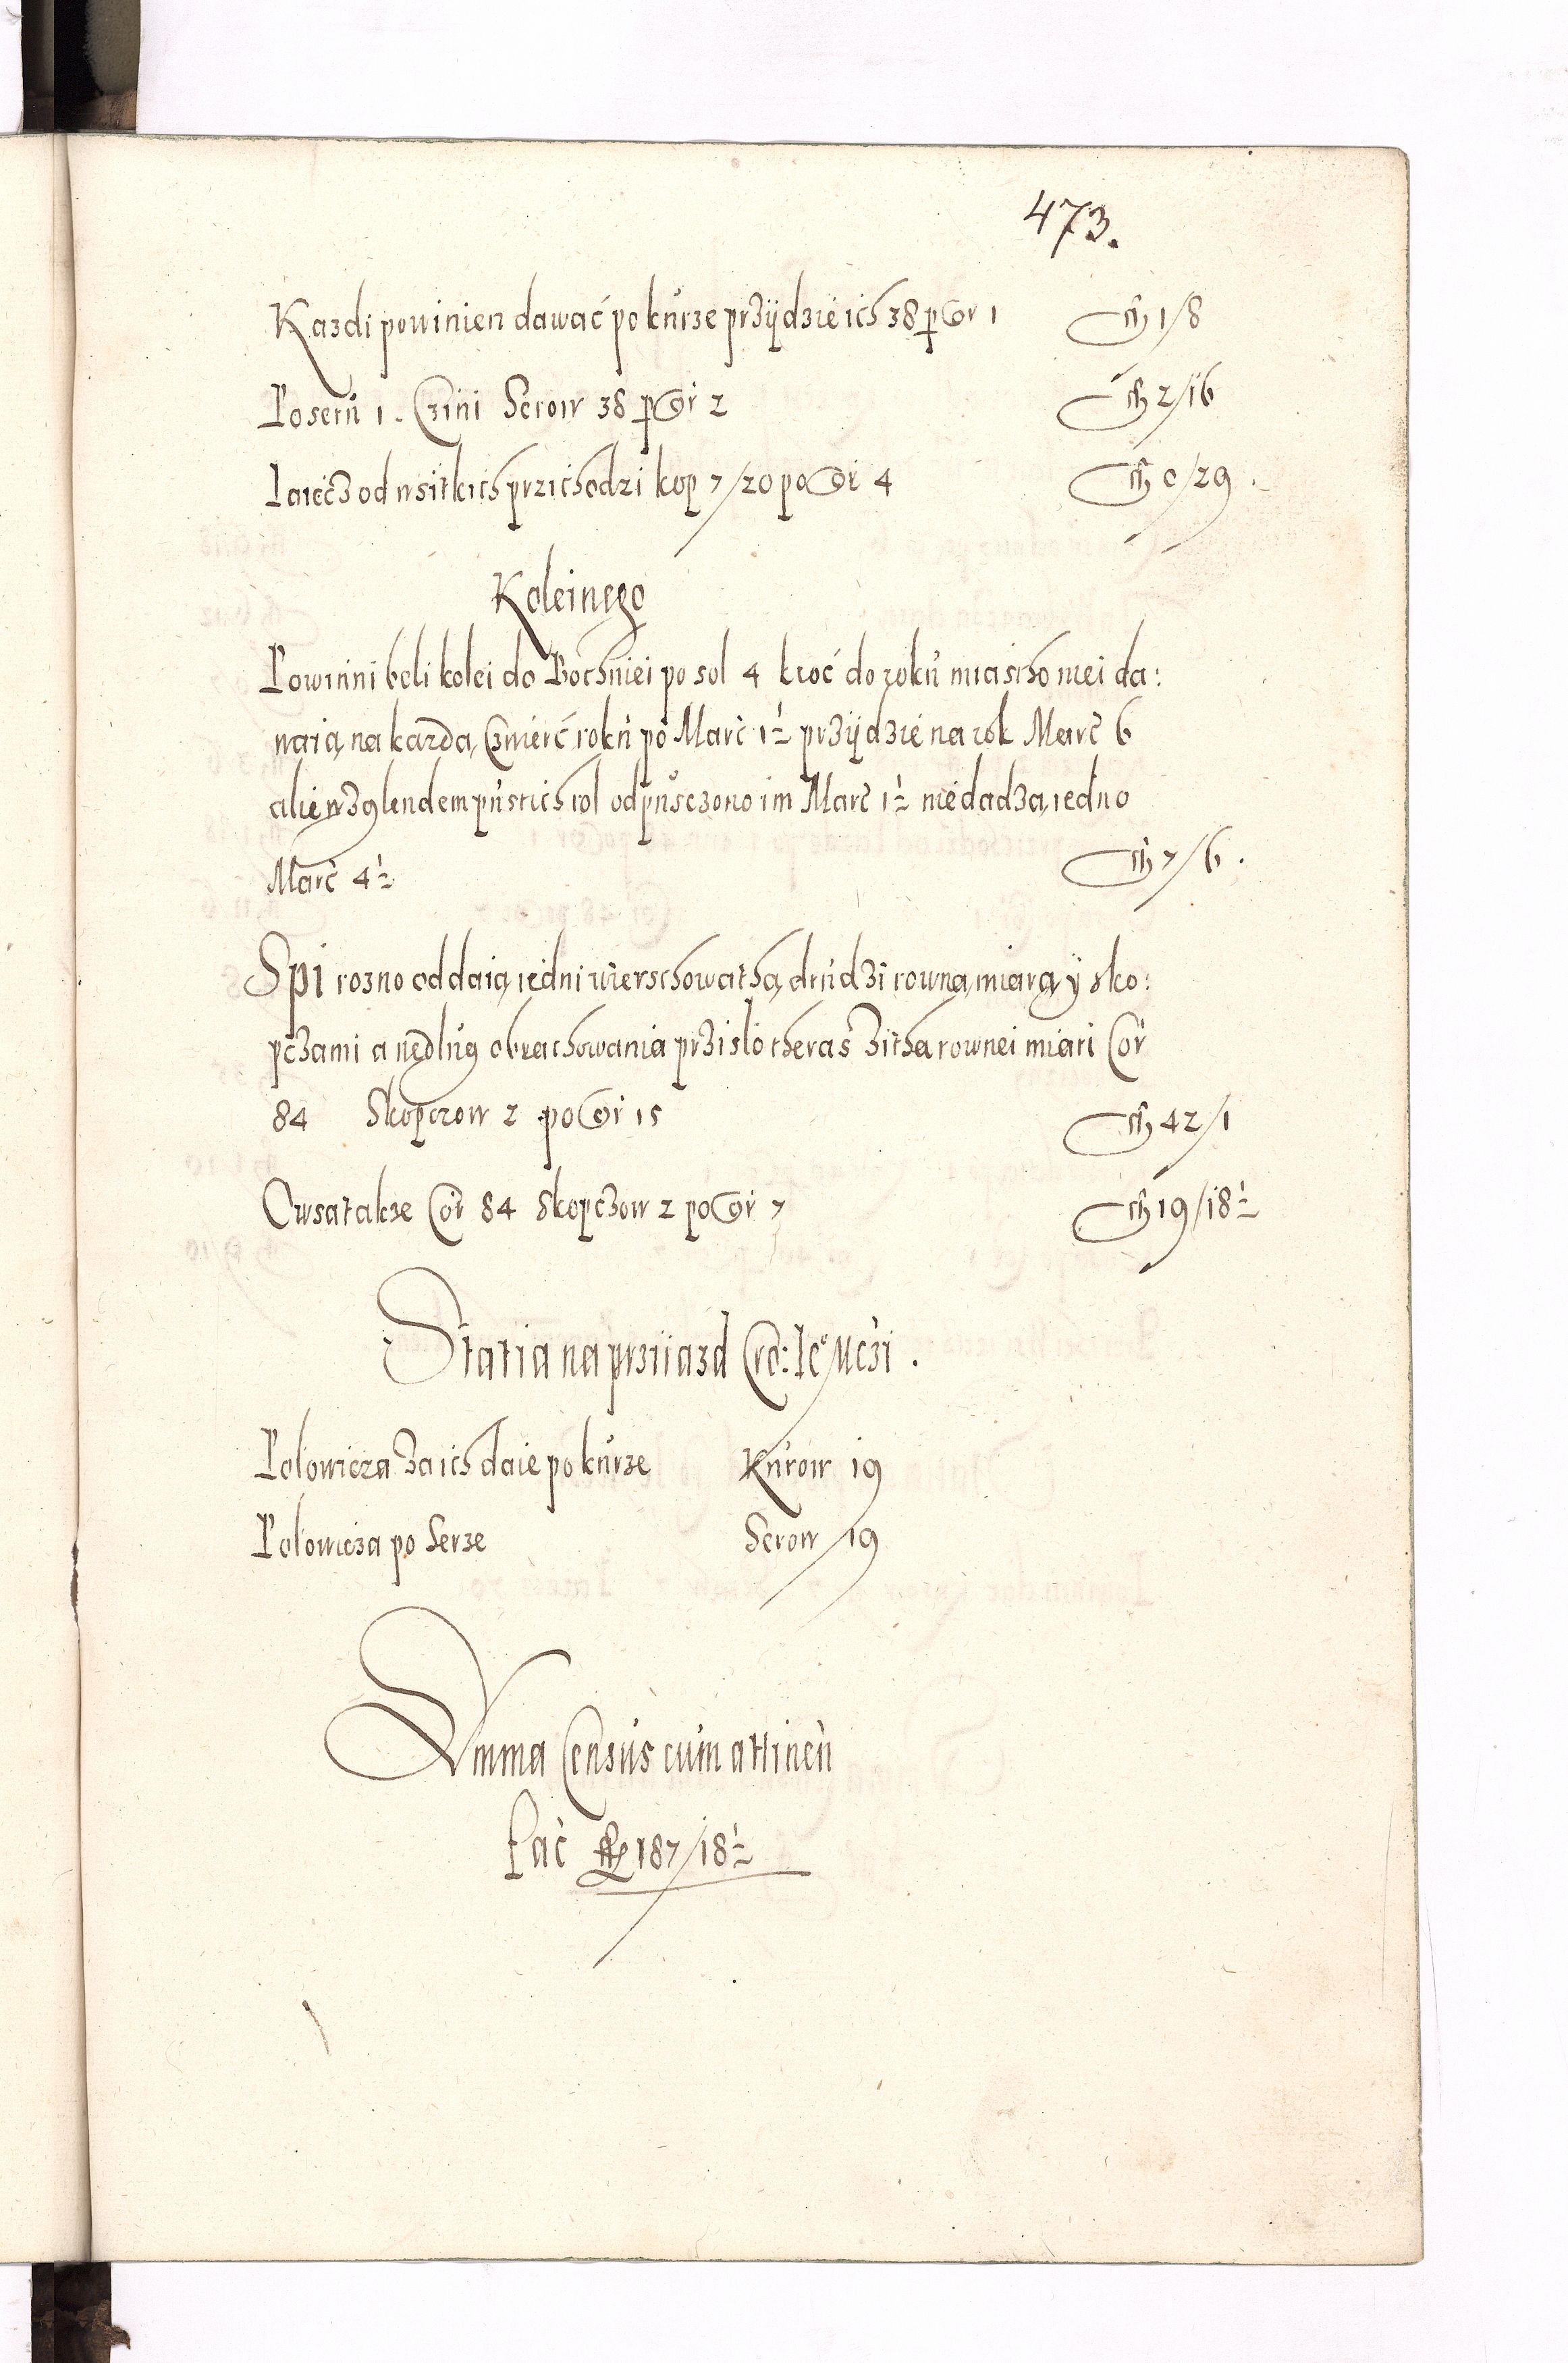 473.
Kazdi powinien dawać po kurze przÿdzie ich 38 p Gr 1 fl 1/8
Po seru 1. Czini Serow 38 p Gr 2 fl 2/16
Iaiecz od wsitkich przichodzi kop 7/20 po Gr 4 fl 0/29.
Koleinego
Powinni beli kolei do Bochniei po sol 4 kroć do roku miascho niei da:
waią, na kazdą Czwierć roku po Marc 1½ przÿdzie na rok Marc 6
alie wzglendem pustich rol odpusczono im Marc 1½ nie dadzą, iedno
Marc 4½ fl 7/6.
Spi rozno oddaią, iedni wierschowathą, drudzi rowną, miarą ÿ sko:
pczami a wedlug obrachowania przislo theras Zitha rownei miari Cor
84 Skopczow 2 po Gr 15 fl 42/1
Owsa takze Cor 84 Skopczow 2 po Gr 7 fl 19/18½
Statia na przÿazd Cro: Ie° Mczi.
Polowicza za ich daie po kurze Kurow 19
Polowicza po Serze Serow 19
Summa Census cum attinen
Fac fl 187/18½